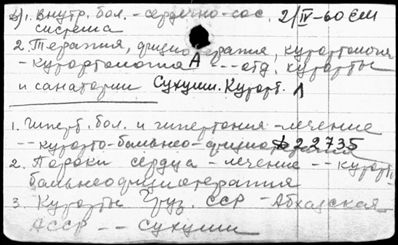 б) 1. Внутр. бол. - сердечно-сос. 2/IV-60 ЕМ
система
2. Терапия, физиотерапия, курортология
- курортология А -- отд. курорты
и санатории Сухуми. Курорт. Л
1. Гиперт. бол. и гипертония - лечение
-- курорто-бальнео-физио 22735
2. Пороки сердца - лечение -- курорт.
бальнеофизиотерапия
3. Курорты Груз. ССР - Абхазская
АССР -- Сухуми